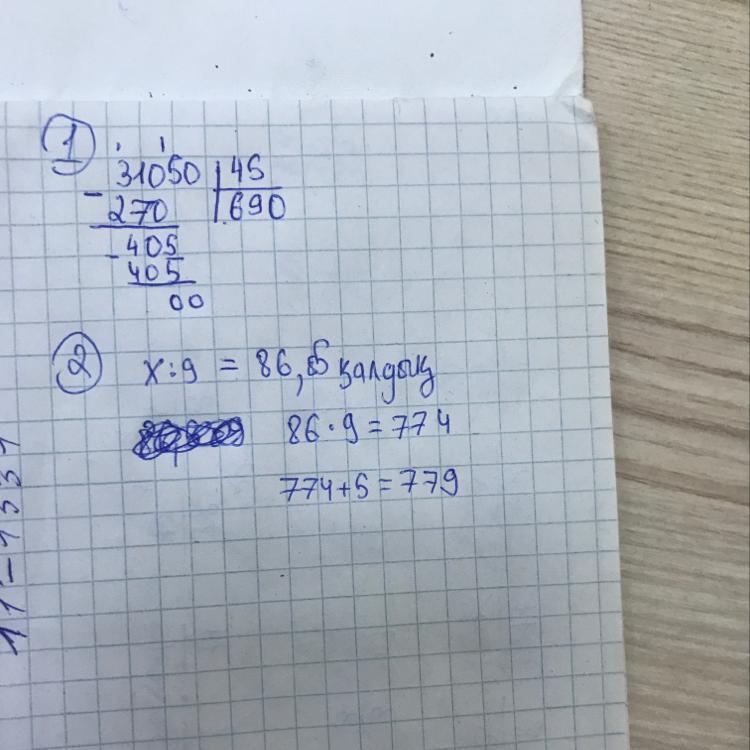 1
31050 45
- 270 690
- 405
405
00
2 x:9 = 86, 5 қалдық
86 · 9 = 774
774+5 = 779